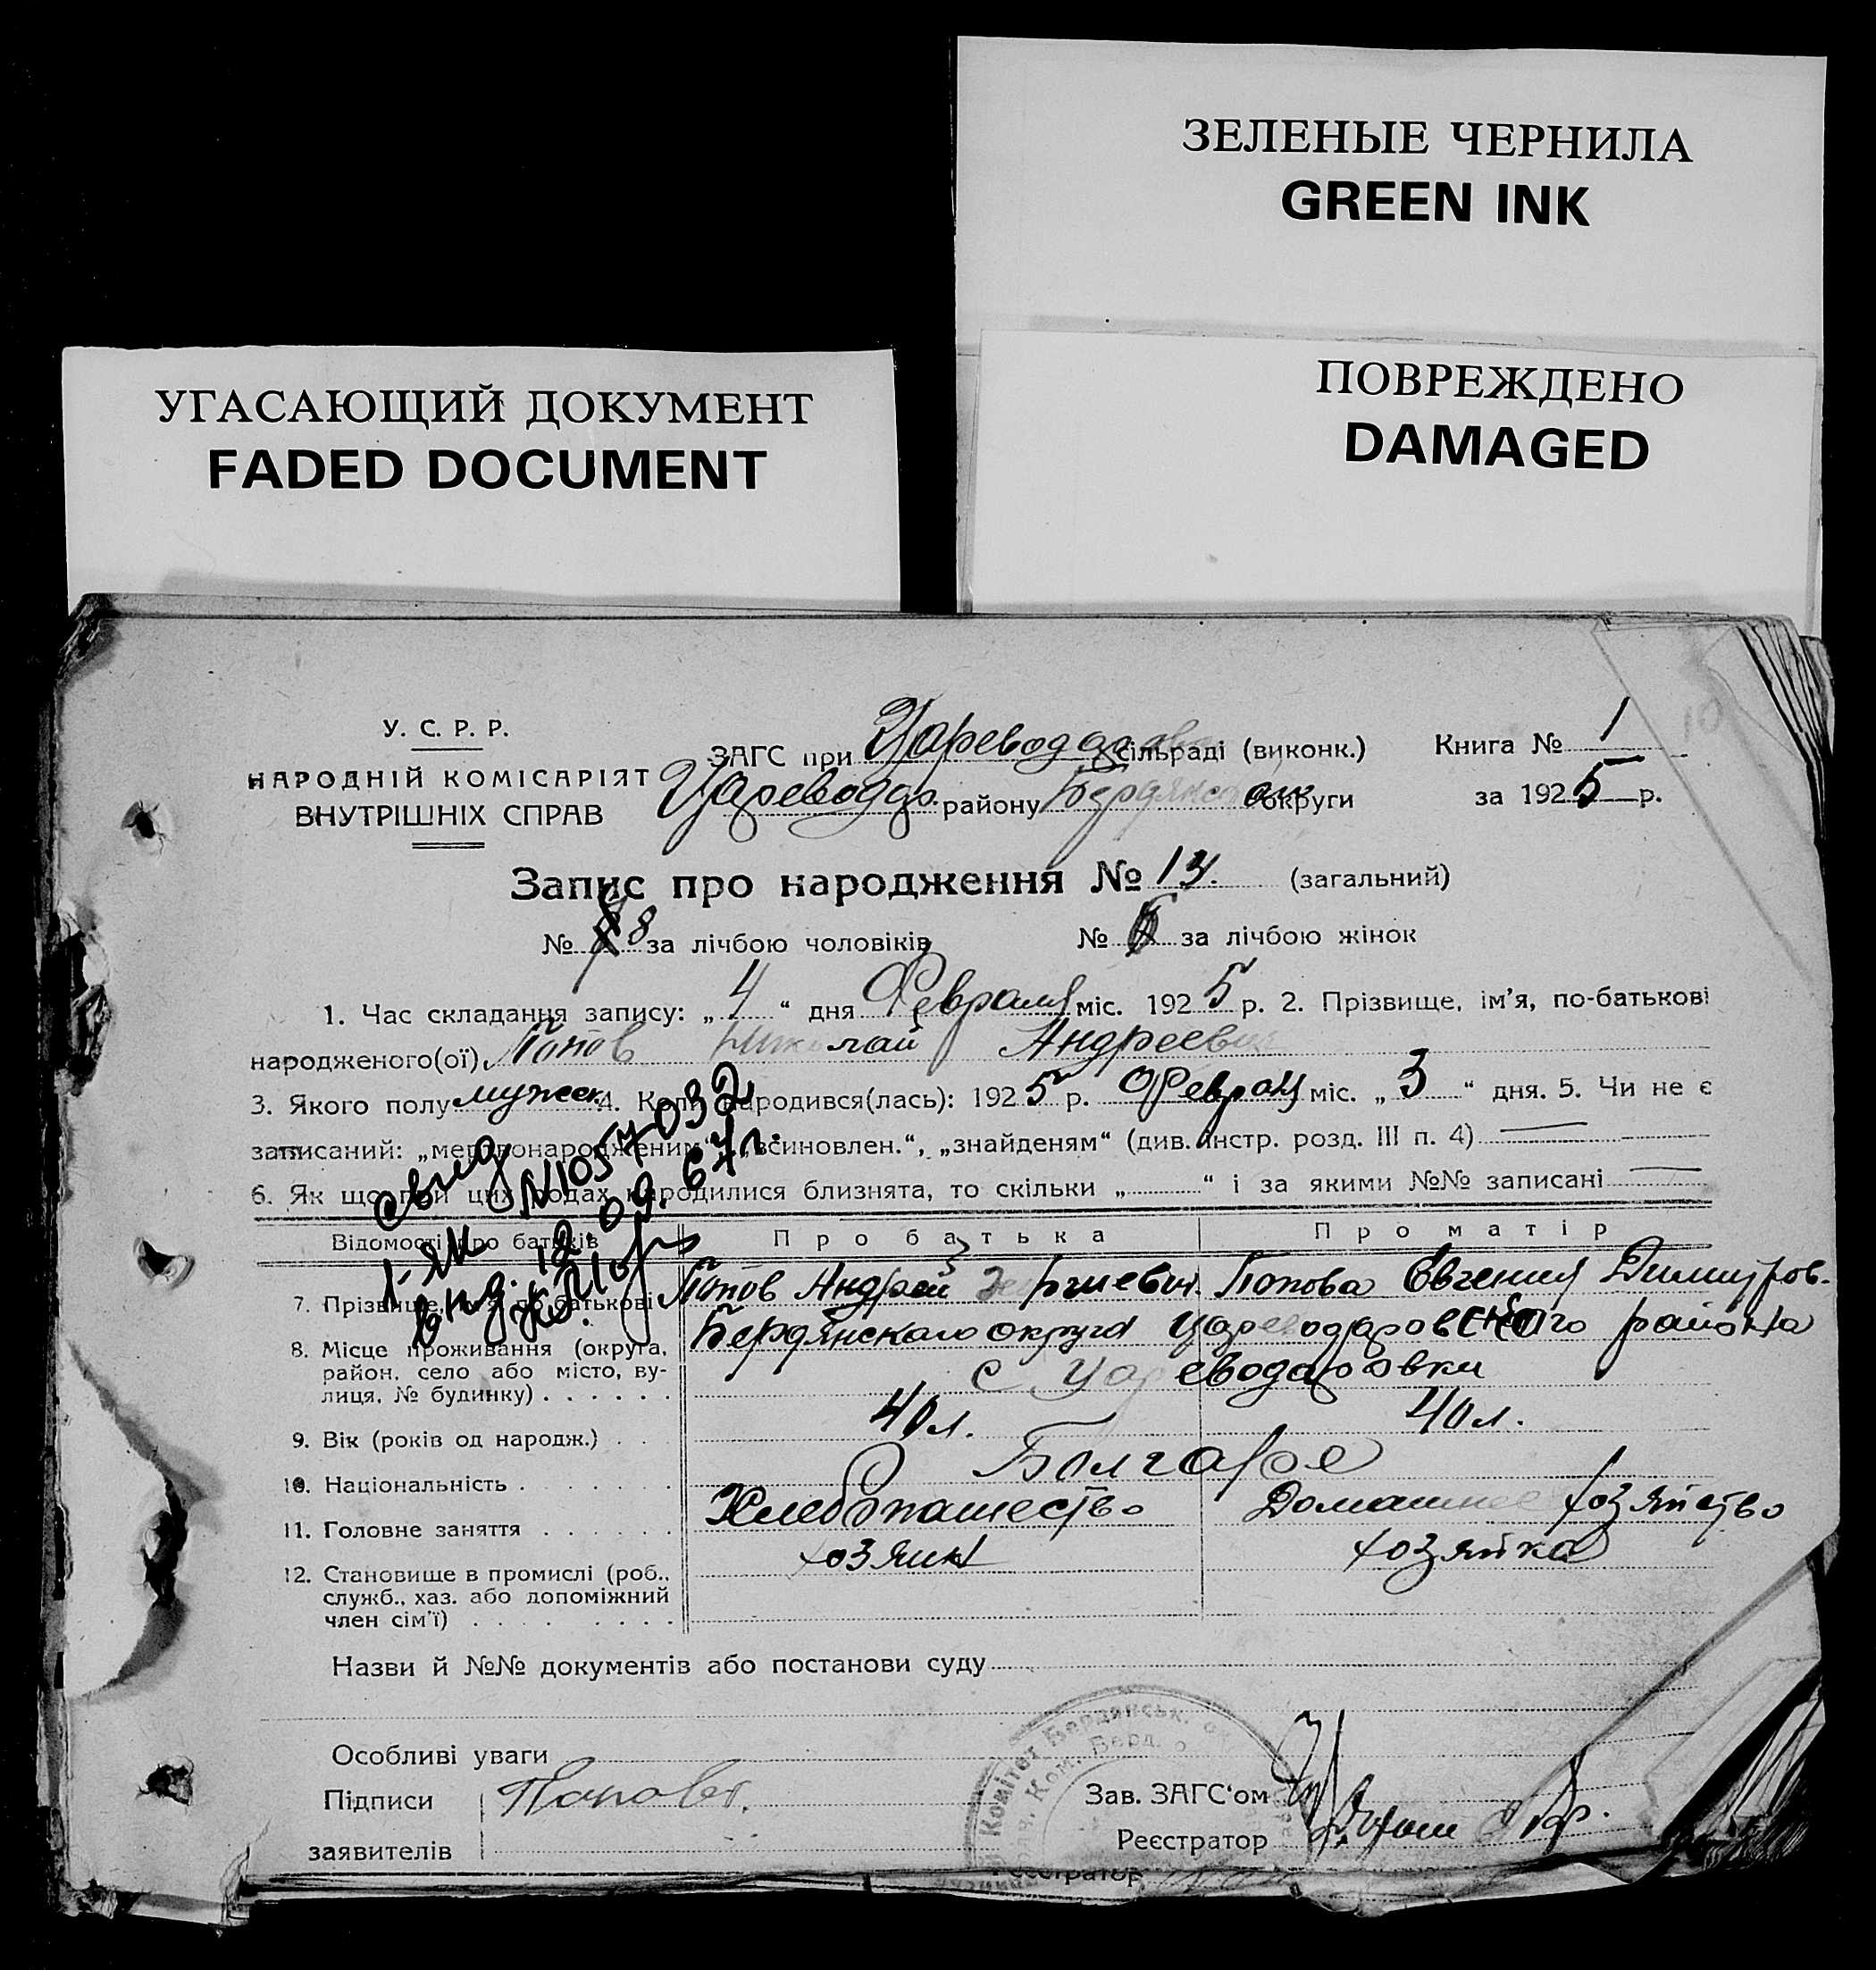 ЗЕЛЕНЫЕ ЧЕРНИЛА
GREEN INK
УГАСАЮЩИЙ ДОКУМЕНТ
FADED DOCUMENT
ПОВРЕЖДЕНО
DAMAGED
У. С. Р. Р.
НАРОДНІЙ КОМІСАРІЯТ
ВНУТРІШНІХ СПРАВ
ЗАГС при Цареводаров сільраді (виконк.) Книга № 1
Цареводар. району Бердянской округи за 1925 р.
Запис про народження № 13. (загальний)
№ 8 за лічбою чоловіків № за лічбою жінок
1. Час складання запису: „4“ дня Февраля міс. 1925 р. 2. Прізвище, ім’я, по-батькові
народженого(ої) Попов Николай Андреевич
3. Якого полу мужск. 4. Коли народився(лась): 1925 р. Феврал міс. „3“ дня. 5. Чи не є
записаний: „мертвонародженим“, „всиновлен.“, „знайденям“ (див. інстр. розд. III п. 4)
6. Як що при цих родах народилися близнята, то скільки „ “ і за якими №№ записані
свид
I-ЯК № 1057032
выд. 12.09.67г.
Відомості про батьків Про батька Про матір
7. Прізвище, ім’я, по-батькові Попов Андрей Попова Евгения Димитров.
8. Місце проживання (округа, район, село або місто, вулиця, № будинку) Бердянскаго округа Цареводаровского района
с Цареводаровки
9. Вік (років од народж.) 40 л. 40 л.
10. Національність Болгаре
11. Головне заняття Хлебопашество Домашнее хозяйство
12. Становище в промислі (роб., служб., хаз. або допоміжний член сім’ї) хозяин хозяйка
Назви й №№ документів або постанови суду
Особливі уваги
Підписи заявителів Попов
Зав. ЗАГС‘ом
Реєстратор
Комітет Бердянськ. о
Ком. Берд. о
Реєстратор